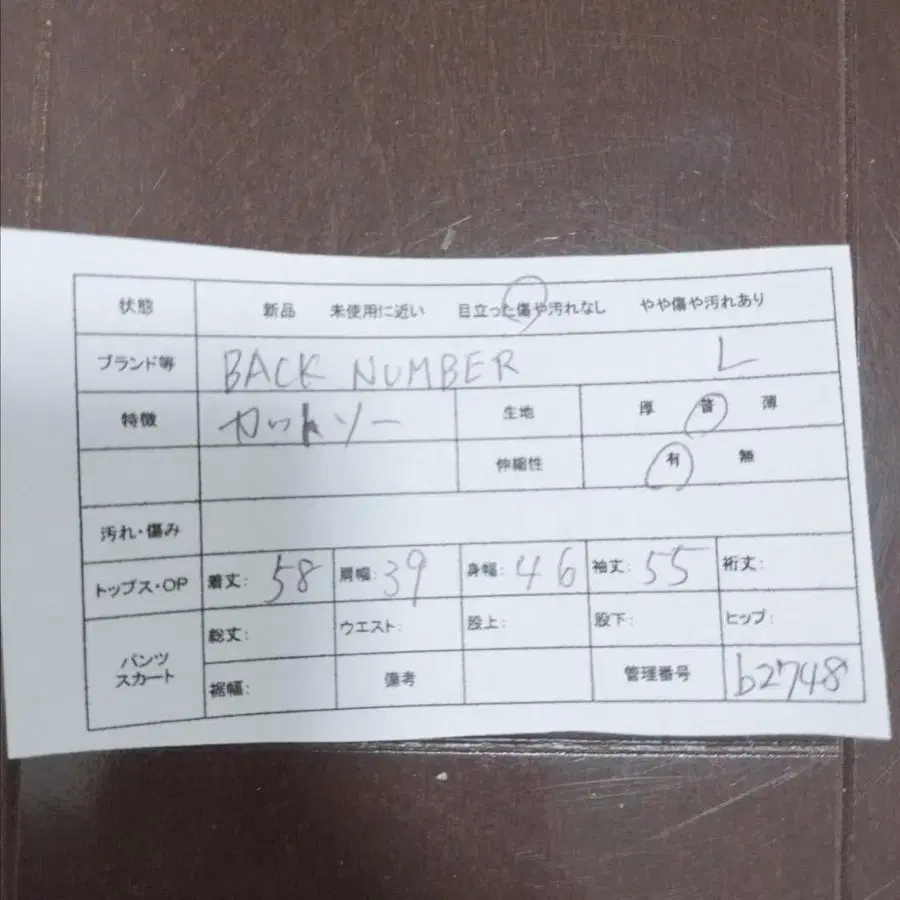 状態 新品 未使用に近い 目立った傷や汚れなし やや傷や汚れあり
ブランド等 BACK NUMBER L
特徴 カットソー 生地 厚 普 薄
伸縮性 有 無
汚れ・傷み
トップス・OP 着丈: 58 肩幅: 39 身幅: 46 袖丈: 55 裄丈:
パンツ スカート 総丈: ウエスト: 股上: 股下: ヒップ:
裾幅: 備考 管理番号 b2748